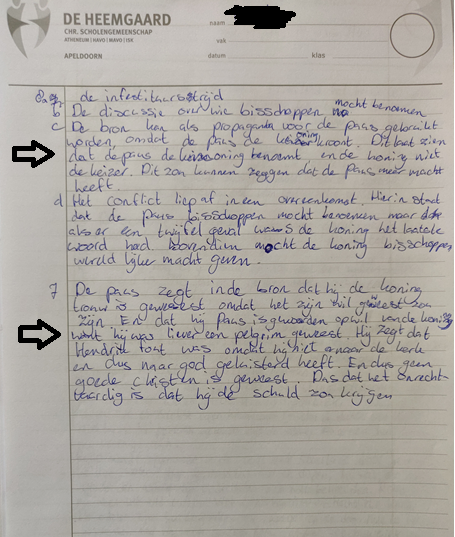 DE HEEMGAARD
CHR. SCHOLENGEMEENSCHAP
ATHENEUM | HAVO | MAVO | ISK
APELDOORN
naam
vak
datum klas
a de infestituursstrijd
b De discussie over wie bisschoppen mocht benoemen
c De bron kan als propaganda voor de paus gebruikt
worden, omdat de paus de koning kroont. Dit laat zien
dat de paus de koning benoemt, en de koning niet
de keizer. Dit zou kunnen zeggen dat de paus meer macht
heeft.
d Het conflict liep af in een overeenkomst. Hierin staat
dat de paus bisschoppen mocht benoemen maar dat
als er een twijfel geval was de koning het laatste
woord had bovendien mocht de koning bisschoppen
wereldlijke macht geven.
7 De paus zegt in de bron dat hij de koning
trouw is geweest omdat het zijn wil geweest zou
zijn. En dat hij Paus is geworden op wil van de koning
want hij was liever een pelgrim geweest. Hij zegt dat
Hendrik fout was omdat hij niet naar de kerk
en dus naar god geluisterd heeft. En dus geen
goede christen is geweest. Dus dat het onrecht-
vaardig is dat hij de schuld zou krijgen